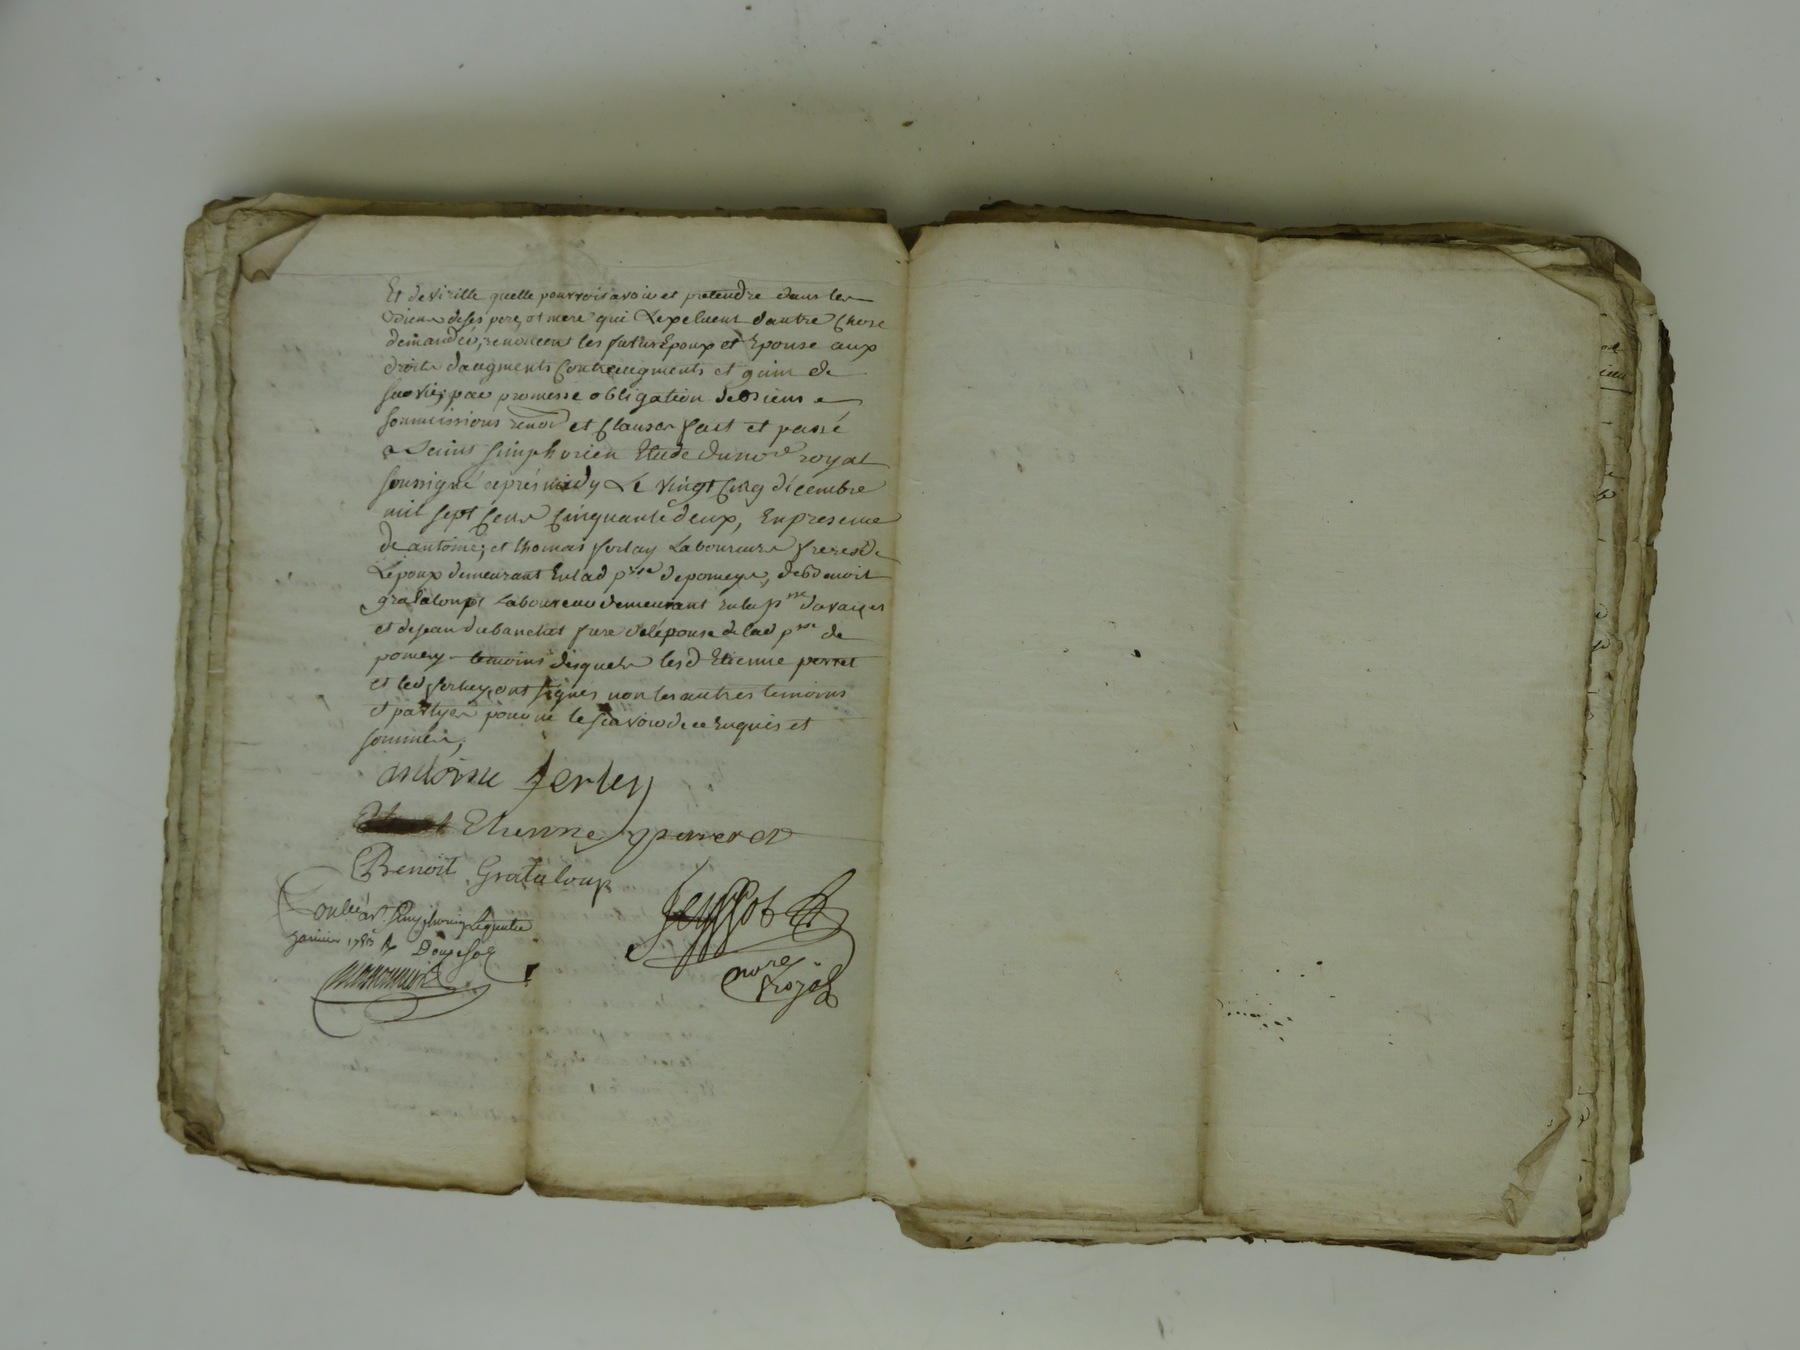 Et de virille quelle pourroit avoir et pretendre dans les
biens de ses pere, et mere qui Lexeluent dautre Chose
demander, renoncent les futurs Epoux et Epouse aux
droits daugments Contreaugments et gain de
survie, par promesse obligation de biens
soumissions renon et Clauses fait et passé
a Saint Simphorien Etude du nore royal
soussigné aprés midy Le vingt Cinq décembre
mil sept Cens Cinquante deux, En presence
de antoine, et thomas ferlay Laboureurs freres de
Lépoux demeurant En lad prsse de pomeys, de benoit
grataloup Laboureur demeurant en la prsse davaizes
et de jean dubanchet frere de lépouse de lad prsse de
pomeys temoins desquels lesd Etienne perret
et led ferley, ont signés non les autres temoins
et partyes pour ne le scavoir de ce Enquis et
sommés,
antoine ferley
Etienne perret
Benoit Grataloup
Conllé a St Simphorien Le quatre
janvier 1753 R Douze sols
nore
Royal